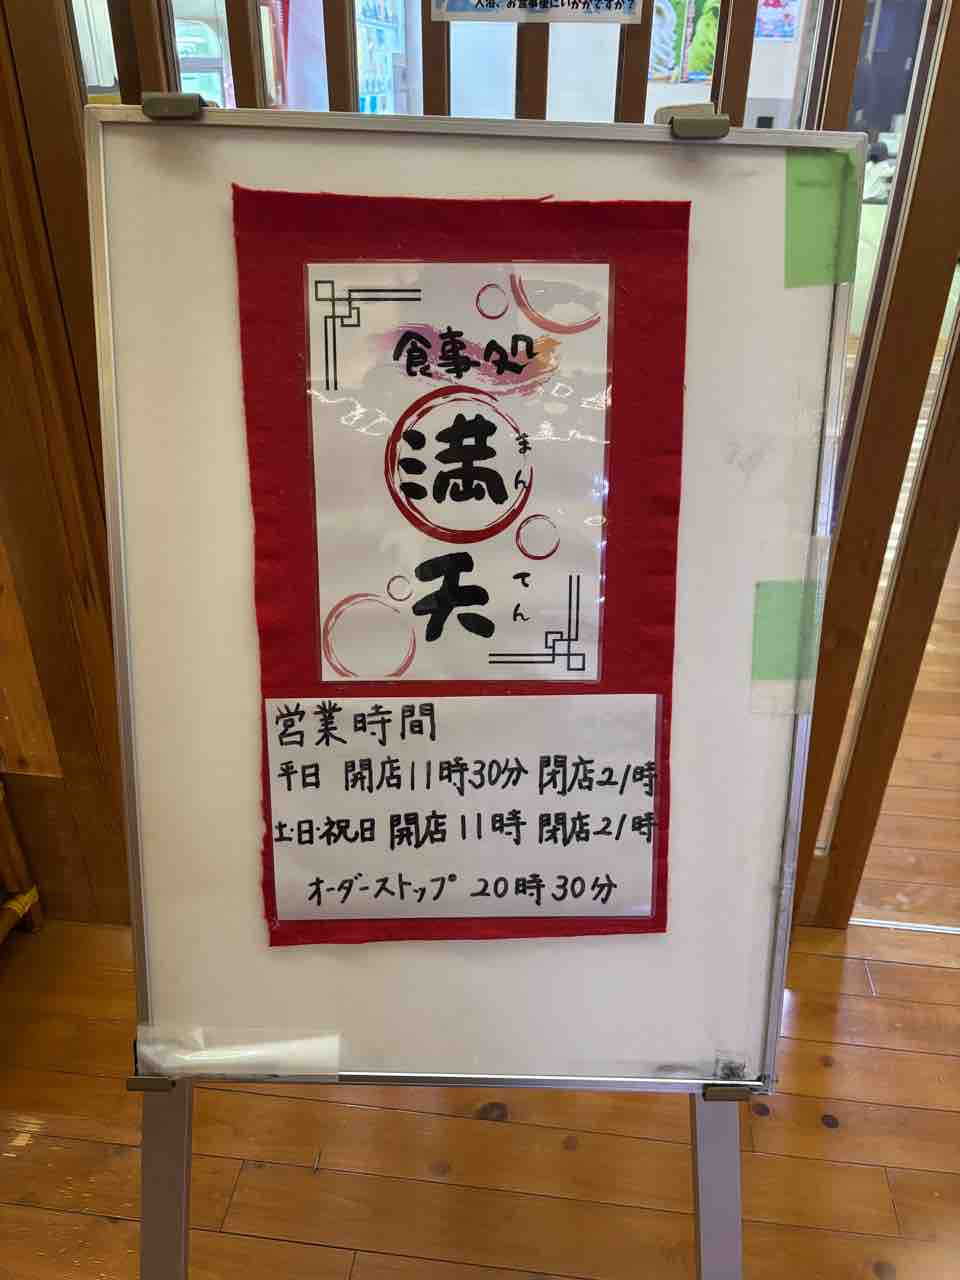 入浴、お食事後にいかがですか？
食事処
満天
まん
てん
営業時間
平日 開店11時30分 閉店21時
土・日・祝日 開店11時 閉店21時
オーダーストップ 20時30分